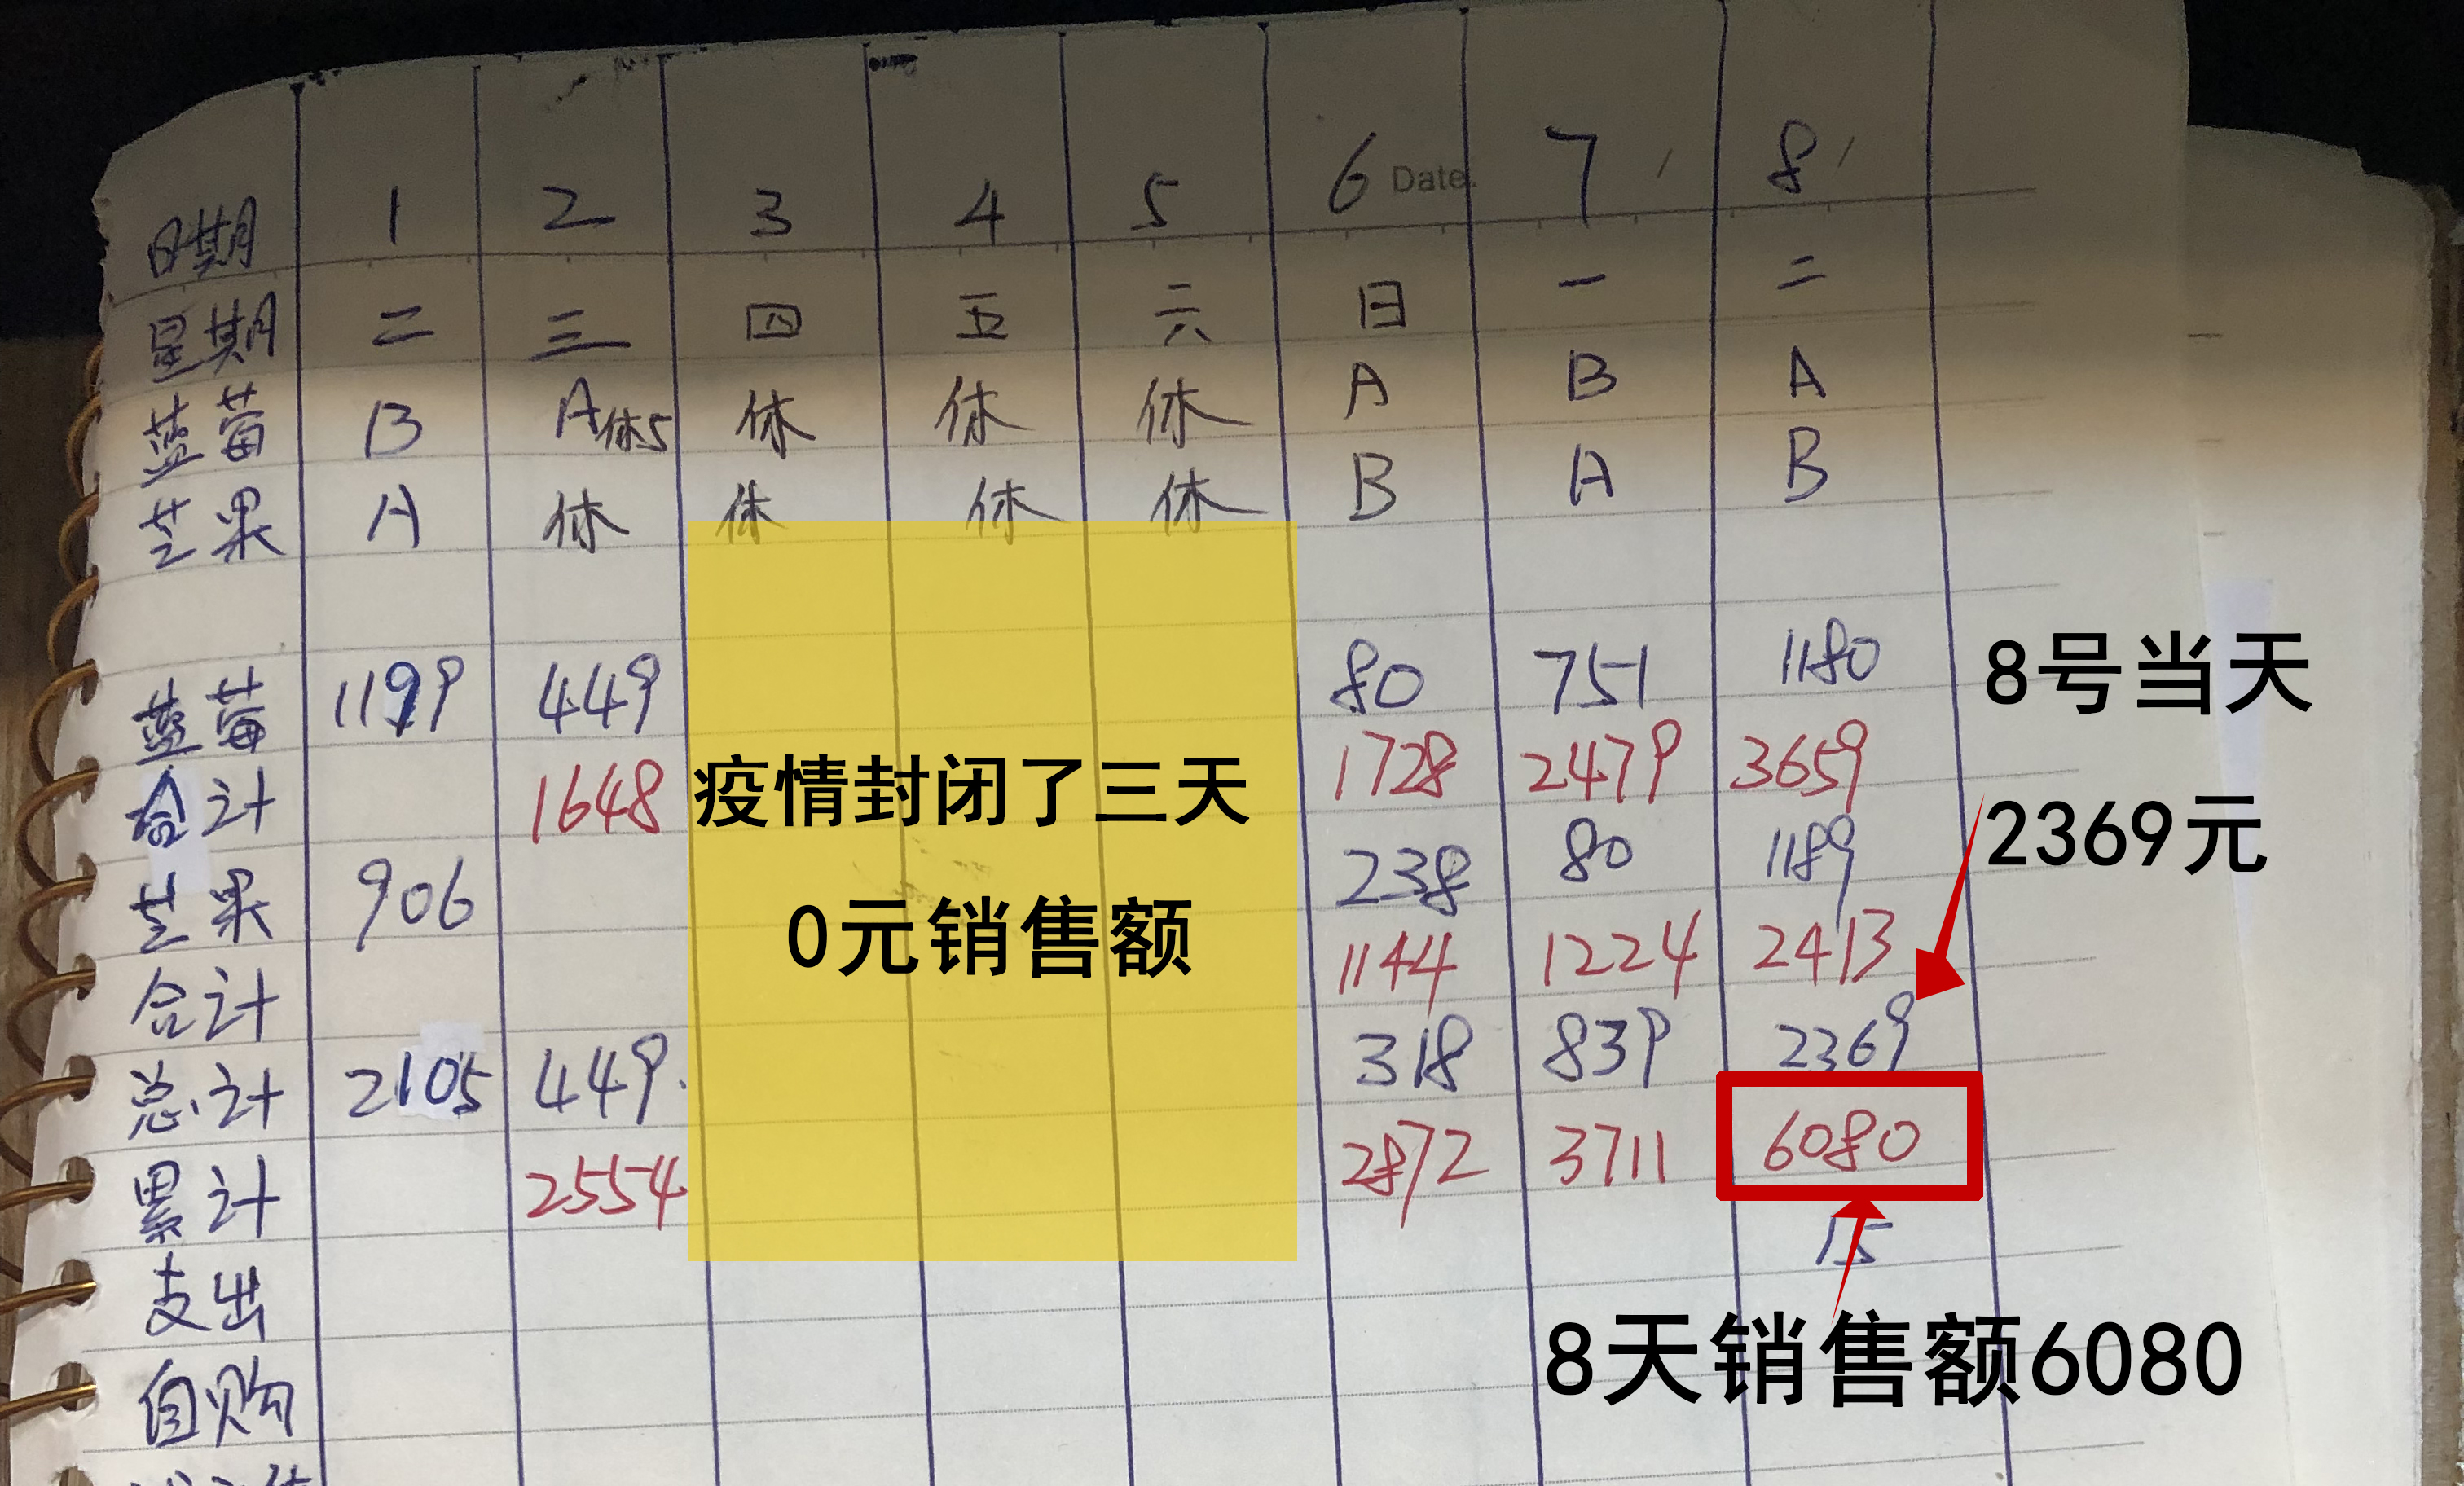 日期 1 2 3 4 5 6 Date. 7 8
星期 二 三 四 五 六 日 一 二
蓝莓 B A休5 休 休 休 A B A
芒果 A 休 休 休 休 B A B
蓝莓 1199 449 80 751 1180
合计 1648 1728 2479 3659
芒果 906 238 80 1189
合计 1144 1224 2413
总计 2105 449. 318 839 2369
累计 2554 2872 3711 6080
支出 15
自购
疫情封闭了三天
0元销售额
8号当天
2369元
8天销售额6080